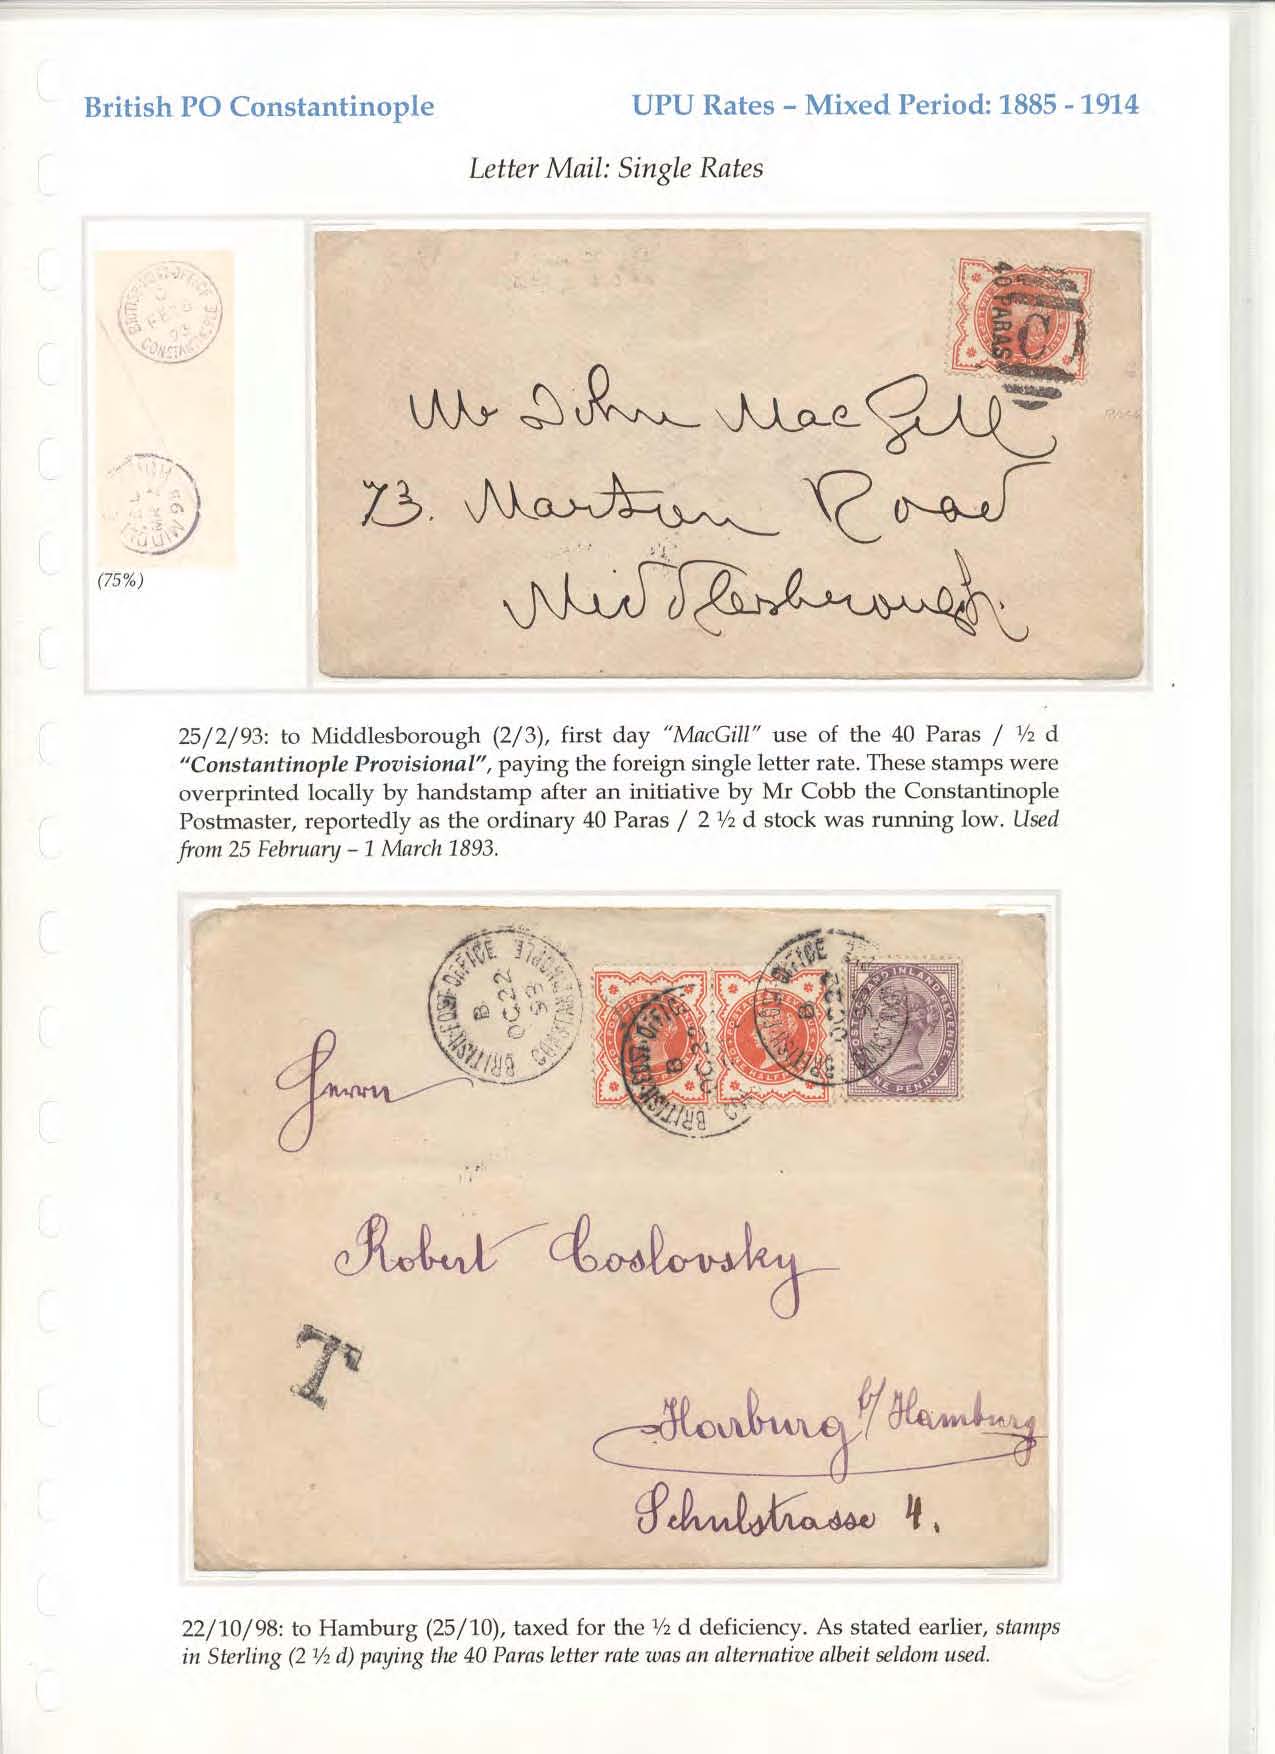 British PO Constantinople
UPU Rates – Mixed Period: 1885 - 1914
Letter Mail: Single Rates
BRITISH POST OFFICE
C
FE 25
93
CONSTANTINOPLE
MR 2
93
(75%)
40 PARAS
C
Mr John MacGill
73. Marton Road
Middlesborough.
25/2/93: to Middlesborough (2/3), first day "MacGill" use of the 40 Paras / ½ d
"Constantinople Provisional", paying the foreign single letter rate. These stamps were
overprinted locally by handstamp after an initiative by Mr Cobb the Constantinople
Postmaster, reportedly as the ordinary 40 Paras / 2 ½ d stock was running low. Used
from 25 February – 1 March 1893.
BRITISH POST OFFICE
B
OC 22
98
CONSTANTINOPLE
BRITISH POST OFFICE
B
OC 22
BRITISH POST OFFICE
B
OC 22
POSTAGE AND INLAND REVENUE
ONE PENNY
Herrn
Robert Coslovsky
T
Harburg b/ Hamburg
Schulstrasse 4.
22/10/98: to Hamburg (25/10), taxed for the ½ d deficiency. As stated earlier, stamps
in Sterling (2 ½ d) paying the 40 Paras letter rate was an alternative albeit seldom used.